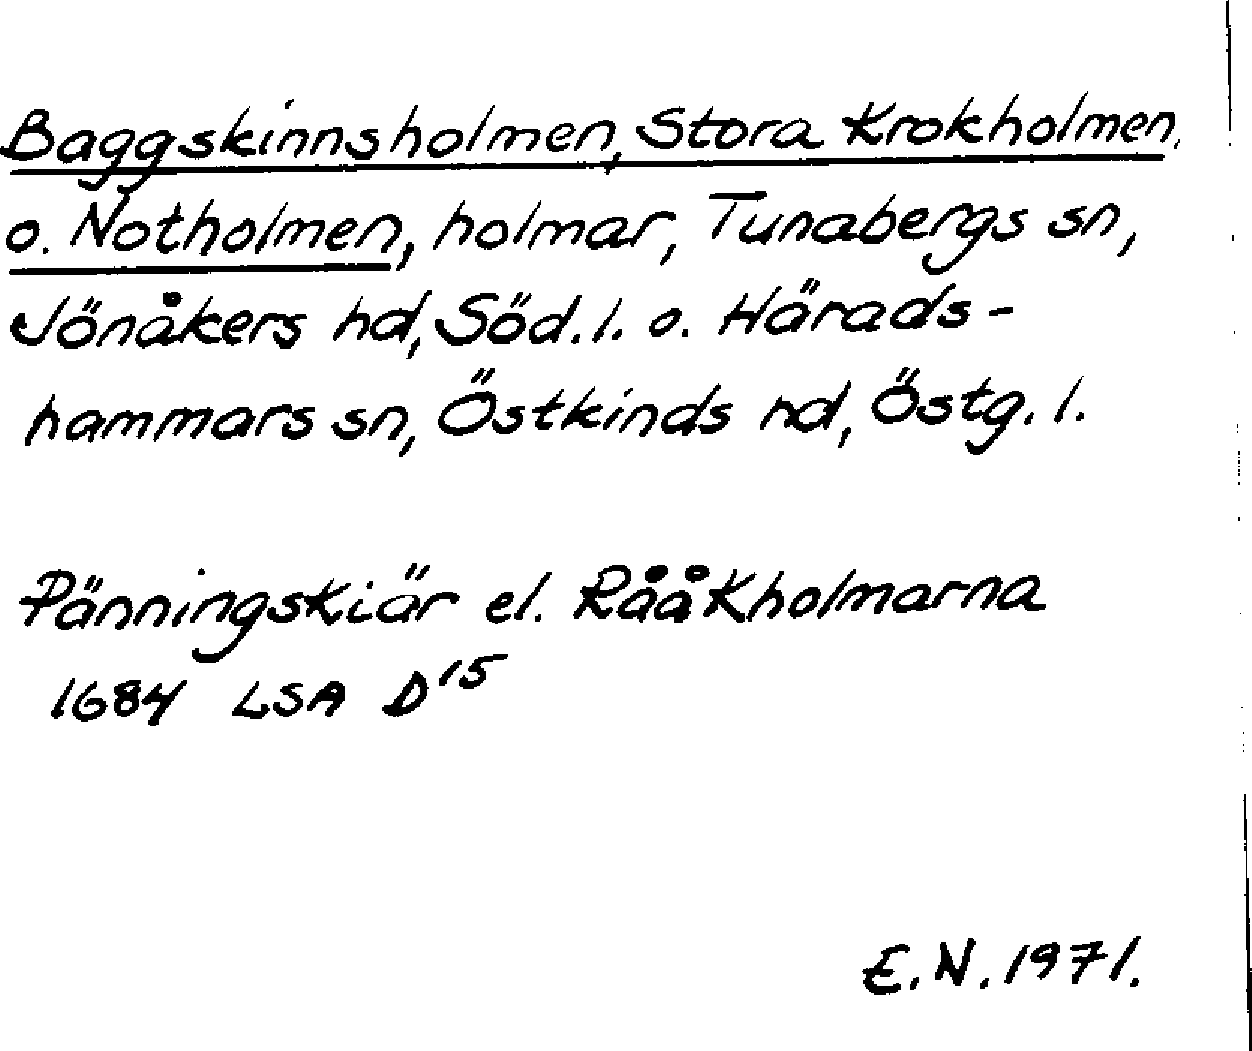 Baggskinnsholmen, Stora Krokholmen,
o. Notholmen, holmar, Tunabergs sn,
Jönåkers hd, Söd. l. o. Härads-
hammars sn, Östkinds hd, Östg. l.
Pänningskiär el. Rååkholmarna
1684 LSA D15
E.N. 1971.